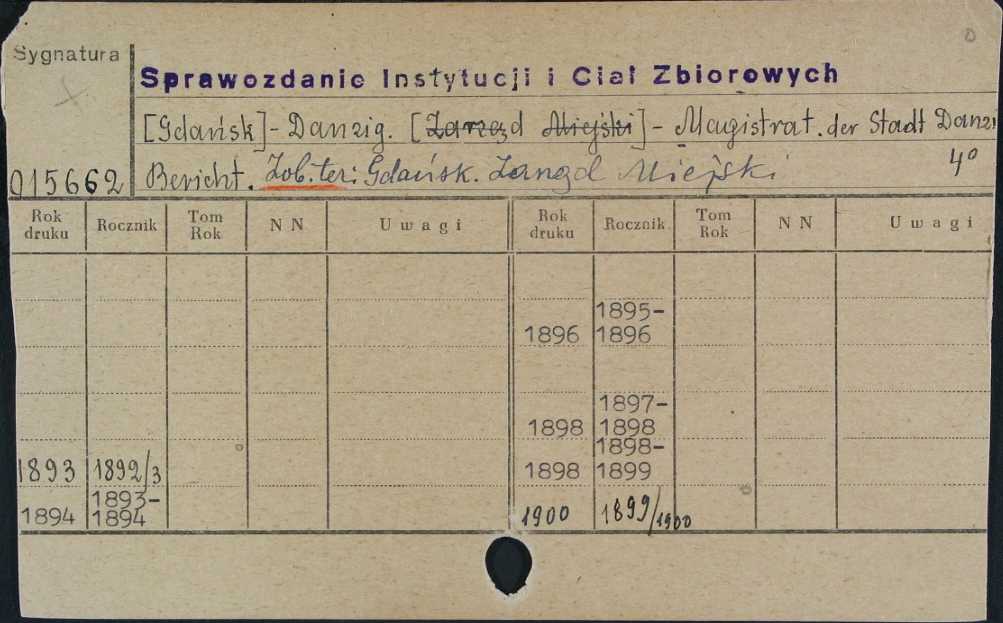 Sygnatura
Sprawozdanie Instytucji i Ciał Zbiorowych
[Gdańsk]-Danzig. [Zarząd Miejski]- Magistrat. der Stadt Danzi
015662 Bericht. Zob. też: Gdańsk. Zarząd Miejski 4°
Rok druku Rocznik Tom Rok N N Uwagi Rok druku Rocznik Tom Rok N N Uwagi
1895-
1896 1896
1897-
1898 1898
1898-
1893 1892/3 1898 1899
1893-
1894 1894 1900 1899/1900